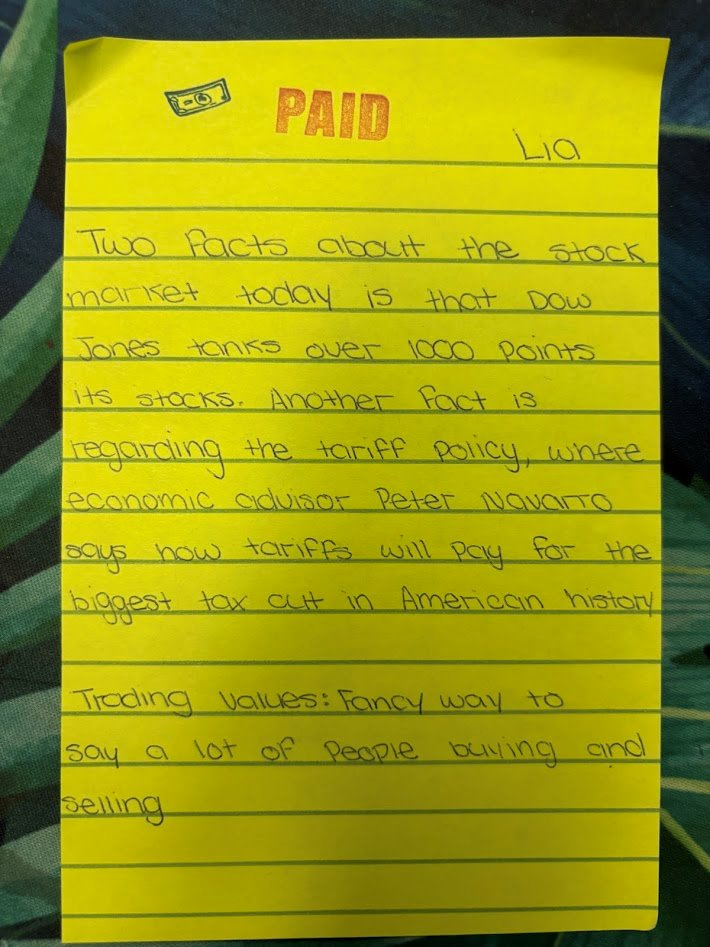 PAID
Lia
Two facts about the stock
market today is that Dow
Jones tanks over 1000 points
its stocks. Another fact is
regarding the tariff policy, where
economic advisor Peter Navarro
says how tariffs will pay for the
biggest tax cut in American history
Trading values: Fancy way to
say a lot of people buying and
selling